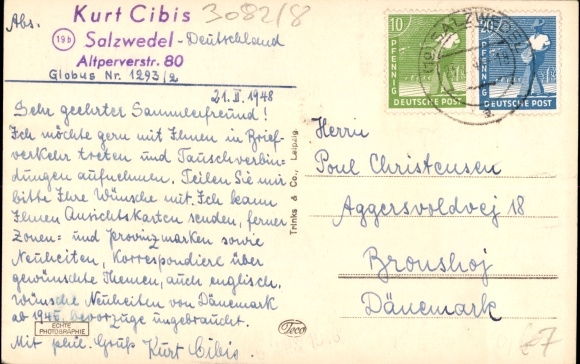 Abs.
Kurt Cibis
3082/8
19b Salzwedel - Deutschland
Altperverstr. 80
Globus Nr. 1293/2
21. II. 1948
Sehr geehrter Sammlerfreund!
Ich möchte gern mit Ihnen in Brief-
verkehr treten und Tauschverbin-
dungen aufnehmen. Teilen Sie mir
bitte Ihre Wünsche mit. Ich kann
Ihnen Ansichtskarten senden, ferner
Zonen- und Provinzmarken sowie
Neuheiten, Korrespondiere über
gewünschte Themen, auch englisch.
Wünsche Neuheiten von Dänemark
ab 1945 bevorzuge ungebraucht.
Mit phil. Gruß Kurt Cibis
ECHTE
PHOTOGRAPHIE
Trinks & Co., Leipzig
10
PFENNIG
DEUTSCHE POST
20
PFENNIG
DEUTSCHE POST
SALZWEDEL
a
Herrn
Poul Christensen
Aggersvoldvej 18
Bronshoj
Dänemark
Teco